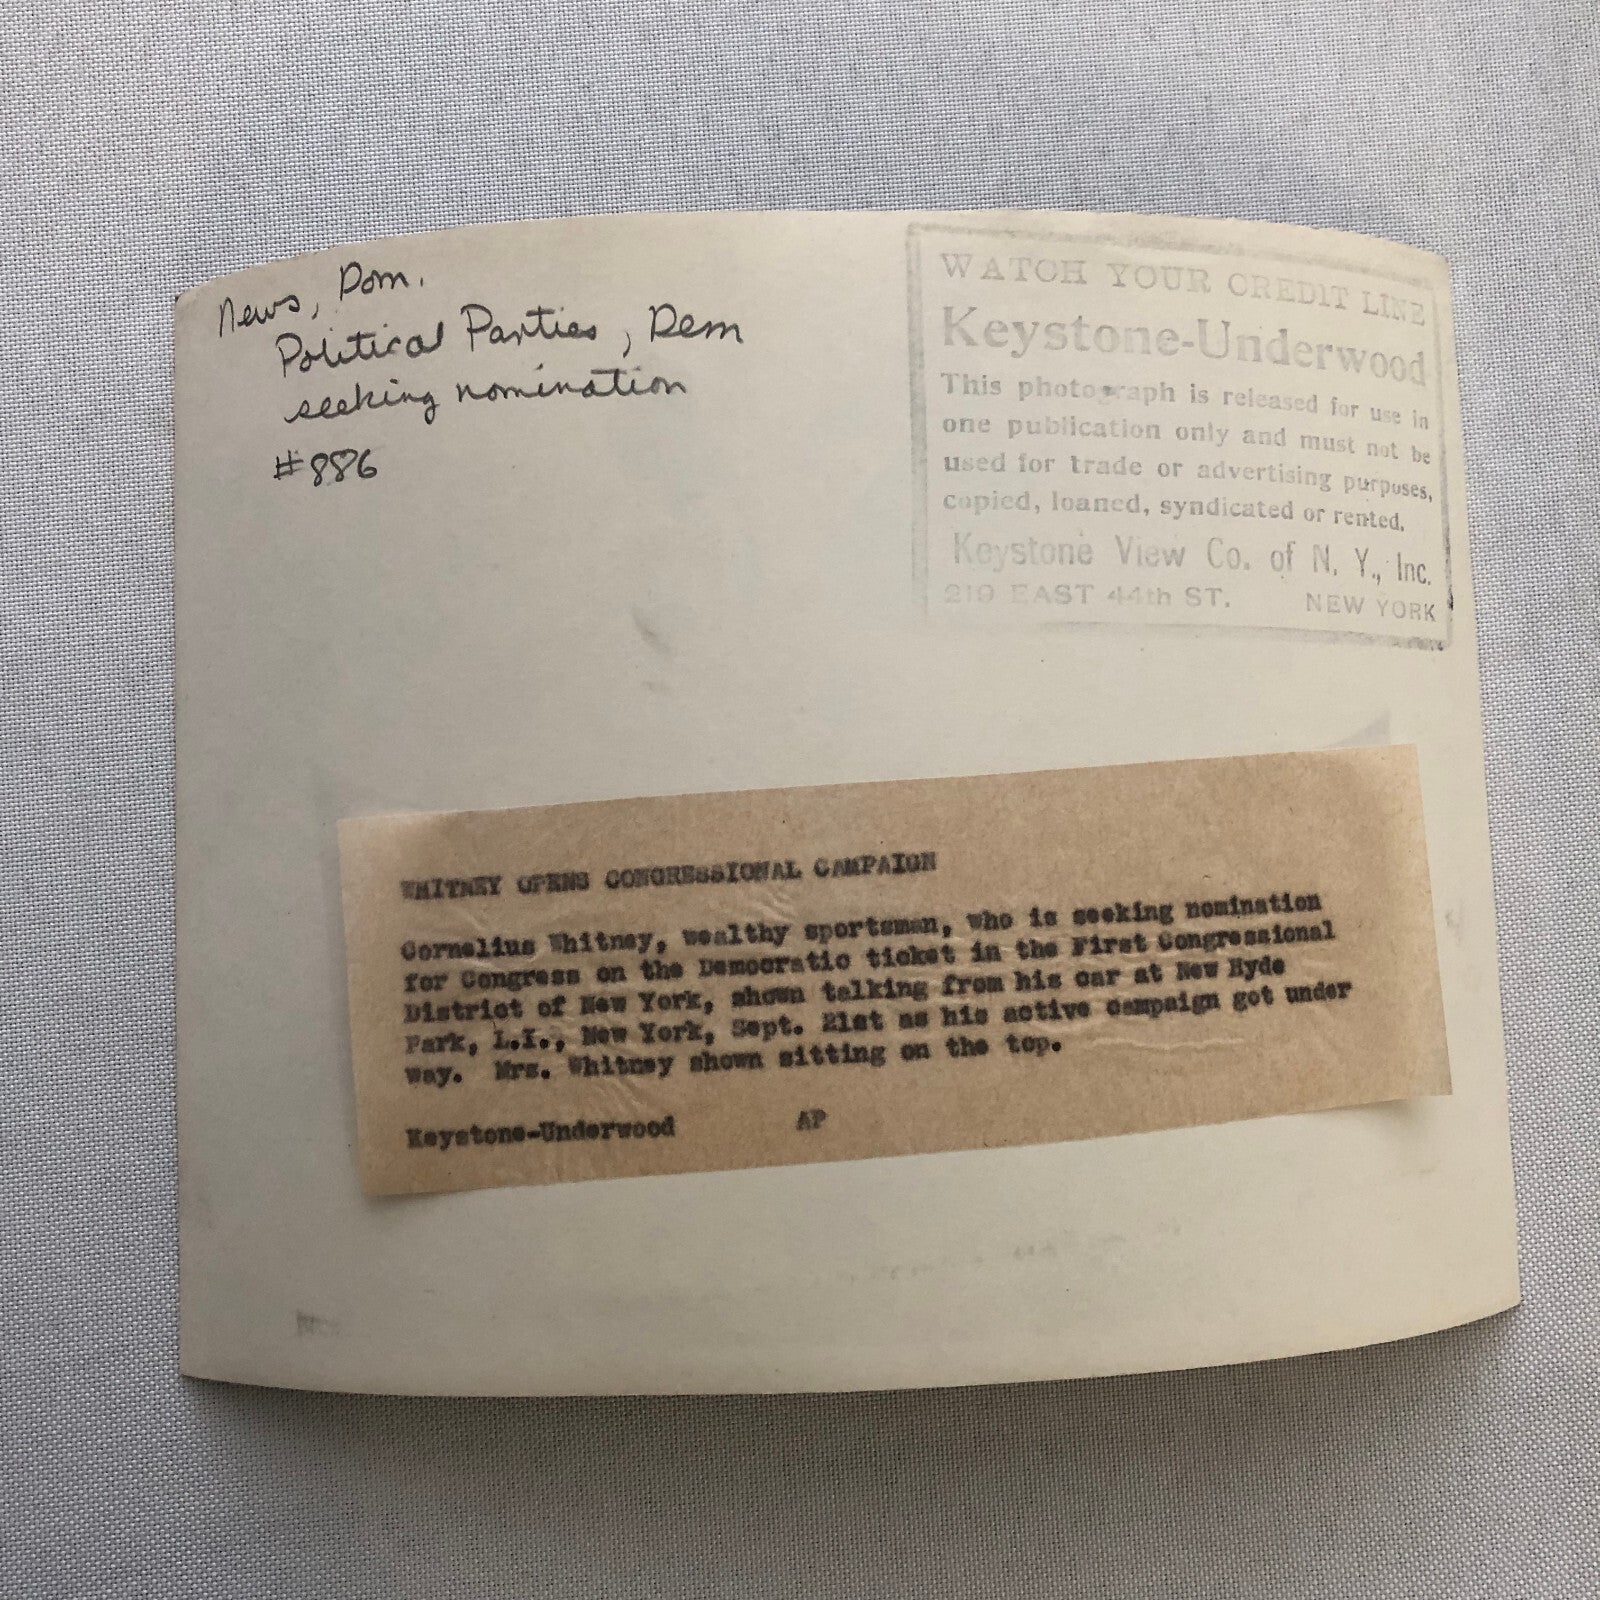 News, Dom.
Political Parties, Dem
seeking nomination
#886
WATCH YOUR CREDIT LINE
Keystone-Underwood
This photograph is released for use in
one publication only and must not be
used for trade or advertising purposes,
copied, loaned, syndicated or rented.
Keystone View Co. of N. Y., Inc.
219 EAST 44th ST. NEW YORK
WHITNEY OPENS CONGRESSIONAL CAMPAIGN
Cornelius Whitney, wealthy sportsman, who is seeking nomination
for Congress on the Democratic ticket in the First Congressional
District of New York, shown talking from his car at New Hyde
Park, L.I., New York, Sept. 21st as his active campaign got under
way. Mrs. Whitney shown sitting on the top.
Keystone-Underwood AP